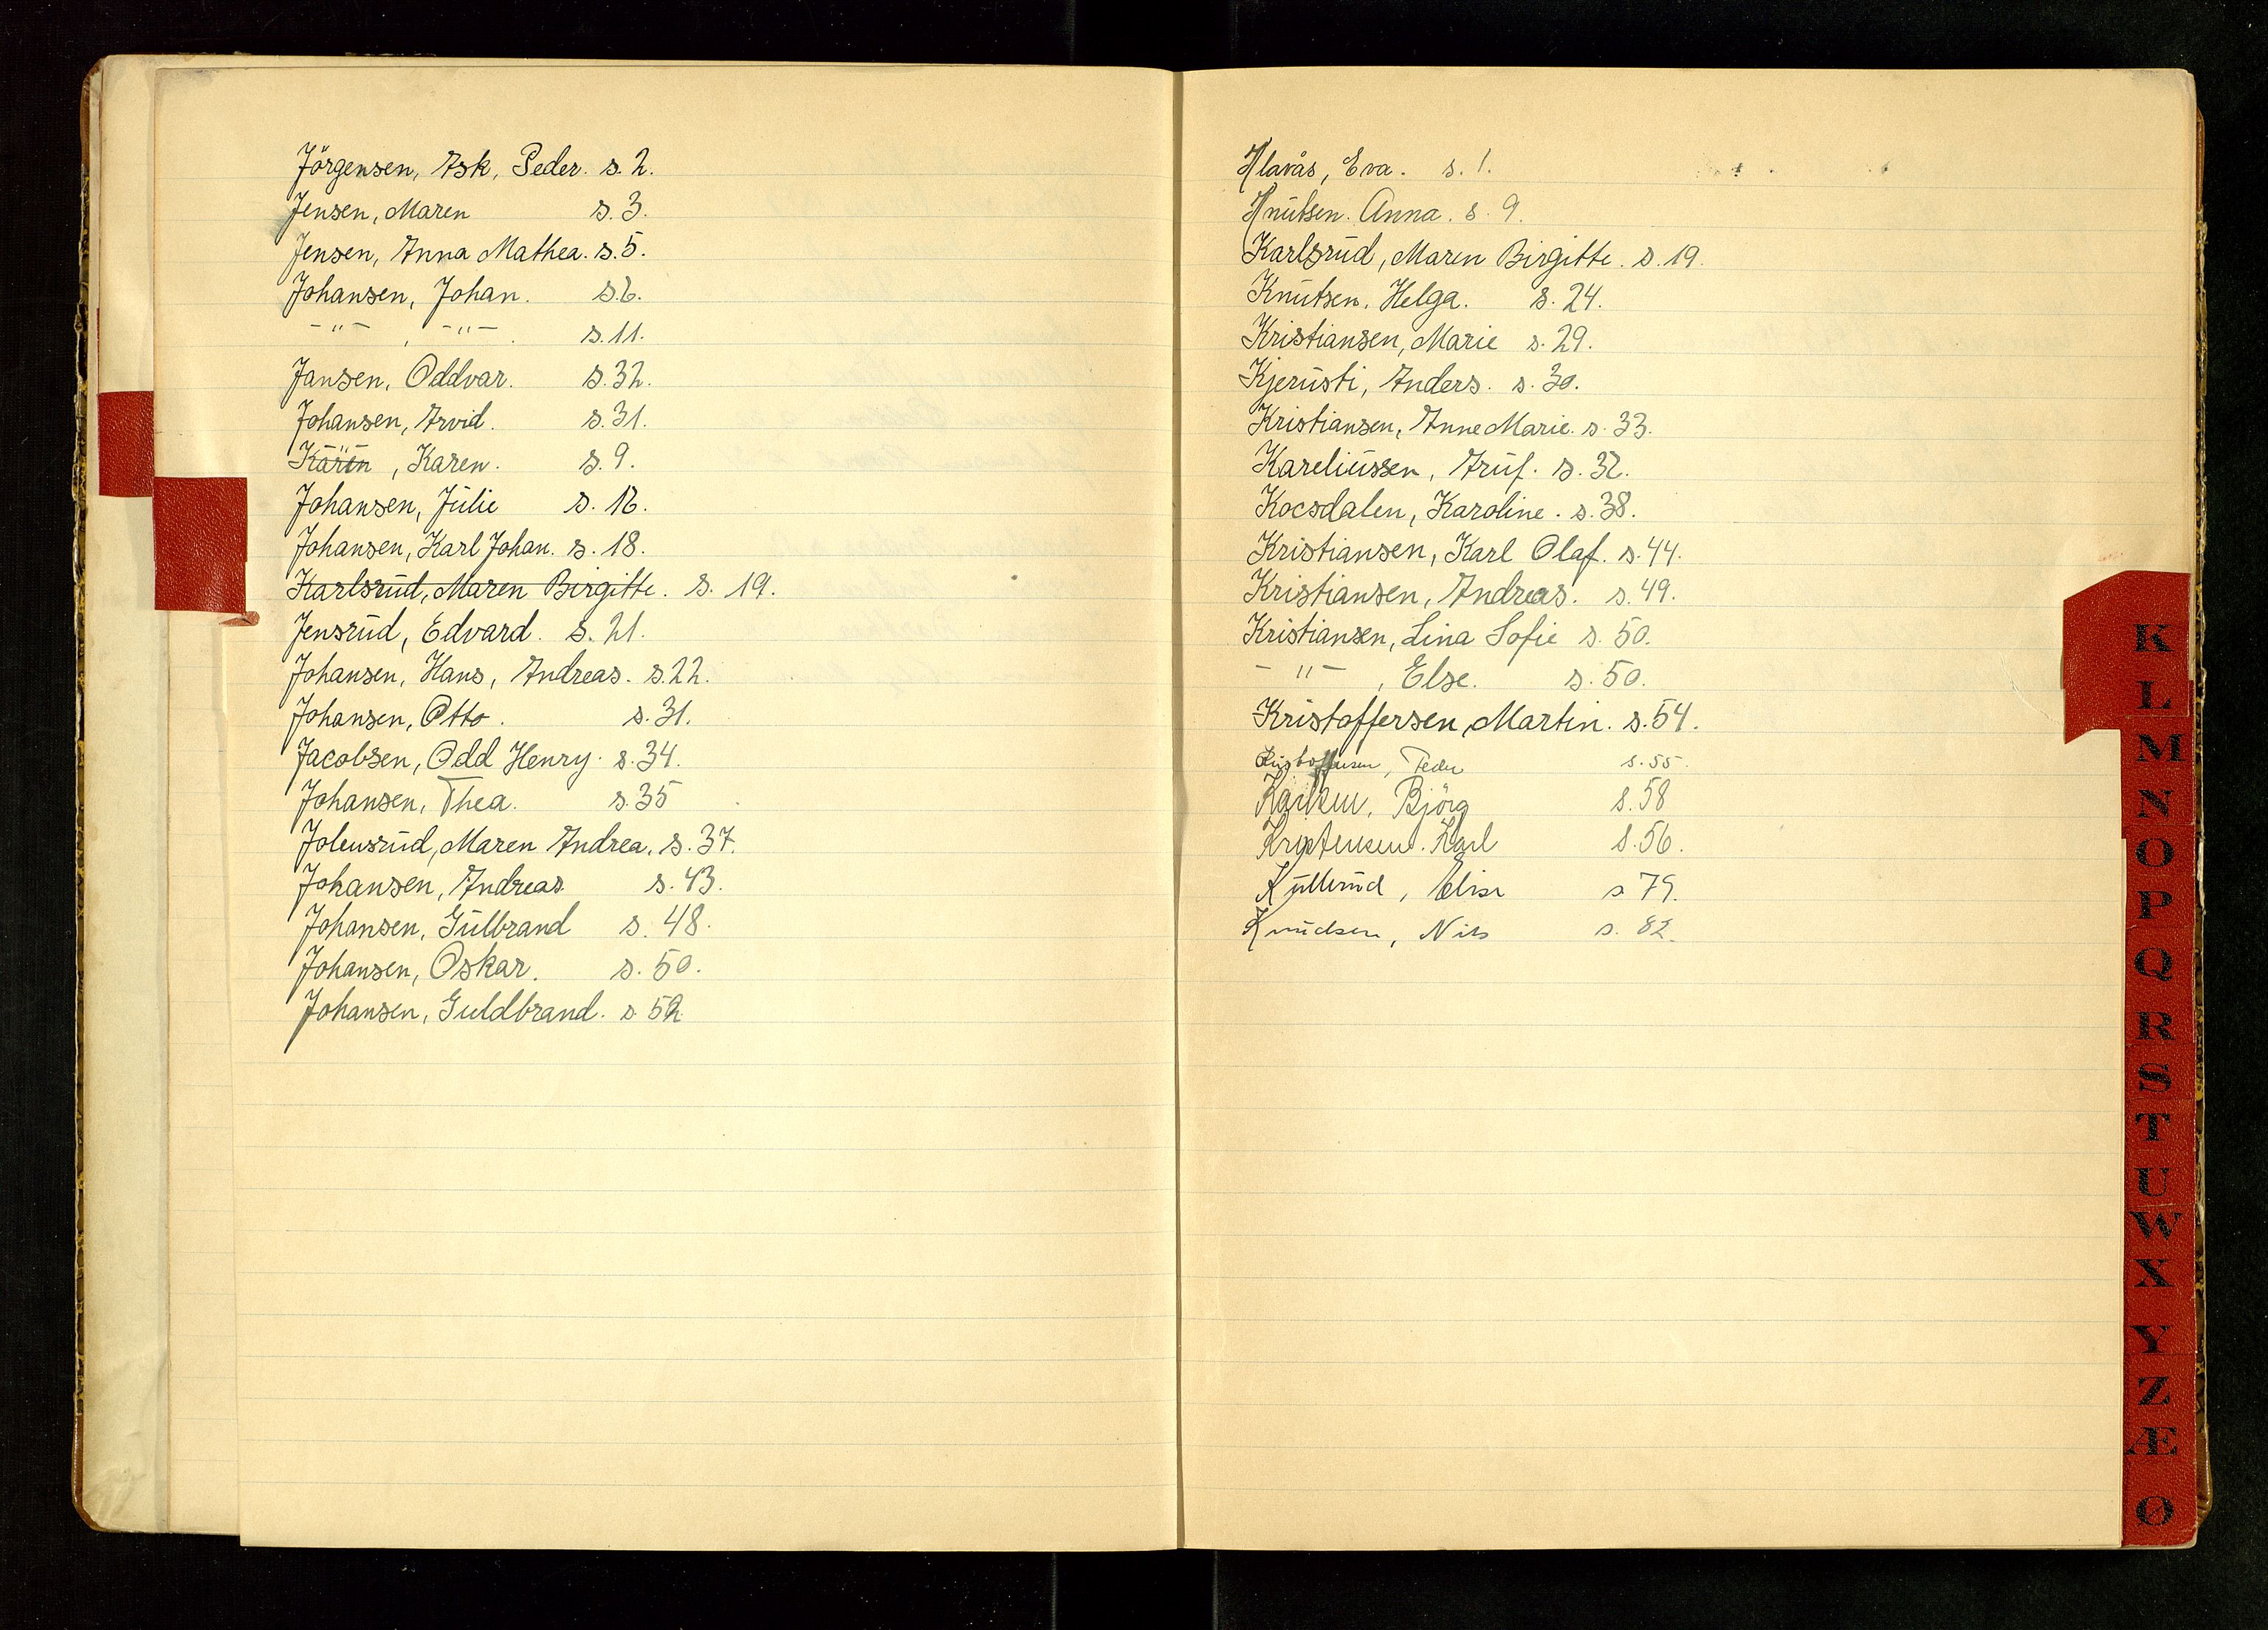 Jörgensen, Ask, Peder. s. 2.
Jensen, Maren s. 3.
Jensen, Anna Mathea. s. 5.
Johansen, Johan. s. 6.
-"- , -"- . s. 11.
Jansen, Oddvar. s. 32.
Johansen, Arvid. s. 31.
Karen, Karen. s. 9.
Johansen, Julie s. 16.
Johansen, Karl Johan. s. 18.
Karlsrud, Maren Birgitte. s. 19.
Jensrud, Edvard. s. 21.
Johansen, Hans, Andreas. s. 22.
Johansen, Otto. s. 31.
Jacobsen, Odd Henry. s. 34.
Johansen, Thea. s. 35
Maren Andrea. s. 37.
Johansen, Andreas s. 43.
Johansen, Gulbrand s. 48.
Johansen, Oskar. s. 50.
Johansen, Guldbrand. s. 52
Klavås, Eva. s. 1.
Knutsen. Anna. s. 9.
Karlsrud, Maren Birgitte. s. 19.
Knutsen, Helga. s. 24.
Kristiansen, Marie s. 29.
Kjerusti, Anders. s. 30.
Kristiansen, Anne Marie. s. 33.
Kareliussen, Truf. s. 32.
Kocsdalen, Karoline. s. 38.
Kristiansen, Karl Olaf. s. 44.
Kristiansen, Andreas. s. 49.
Kristiansen, Lina Sofie s. 50.
-"- , Else. s. 50.
Kristoffersen, Martin. s. 54.
Kristoffersen, Peder s. 55.
Karlsen, Björg s. 58
Kristensen. Karl s. 56.
Kullerud, Elise s 79.
Knudsen, Nils s. 82.
K
L
M
N
O
P
Q
R
S
T
U
W
X
Y
Z
Æ
Ø